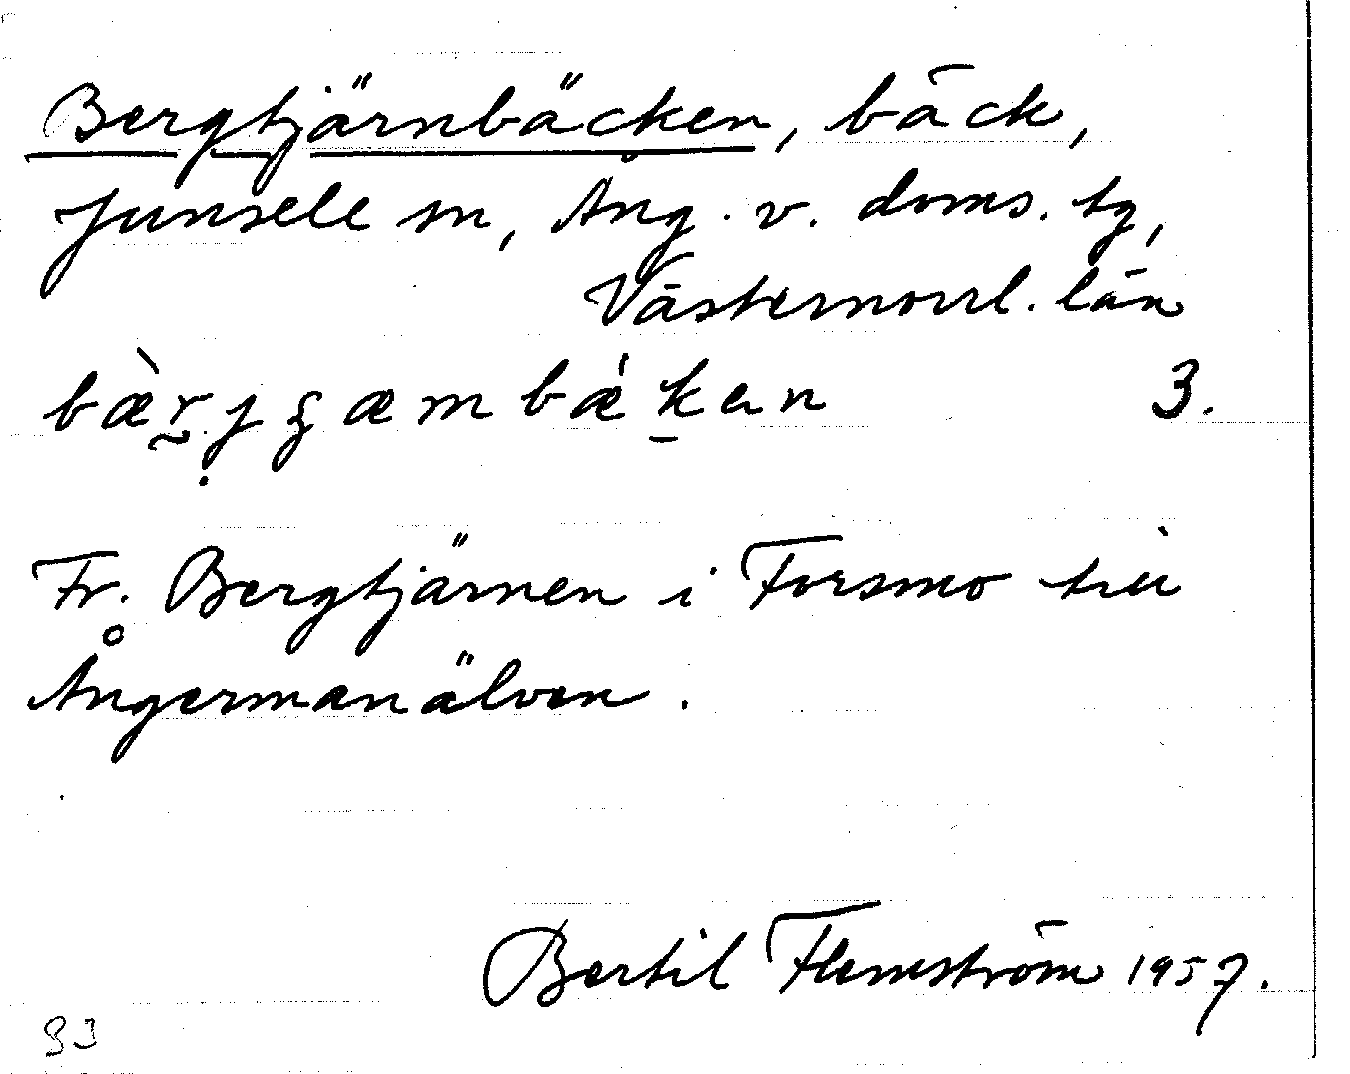 Bergtjärnbäcken, bäck,
Junsele sn, Ång. v. doms. tg,
Västernorrl. län
3.
Fr. Bergtjärnen i Forsmo till
Ångermanälven.
Bertil Flemström 1957.
93